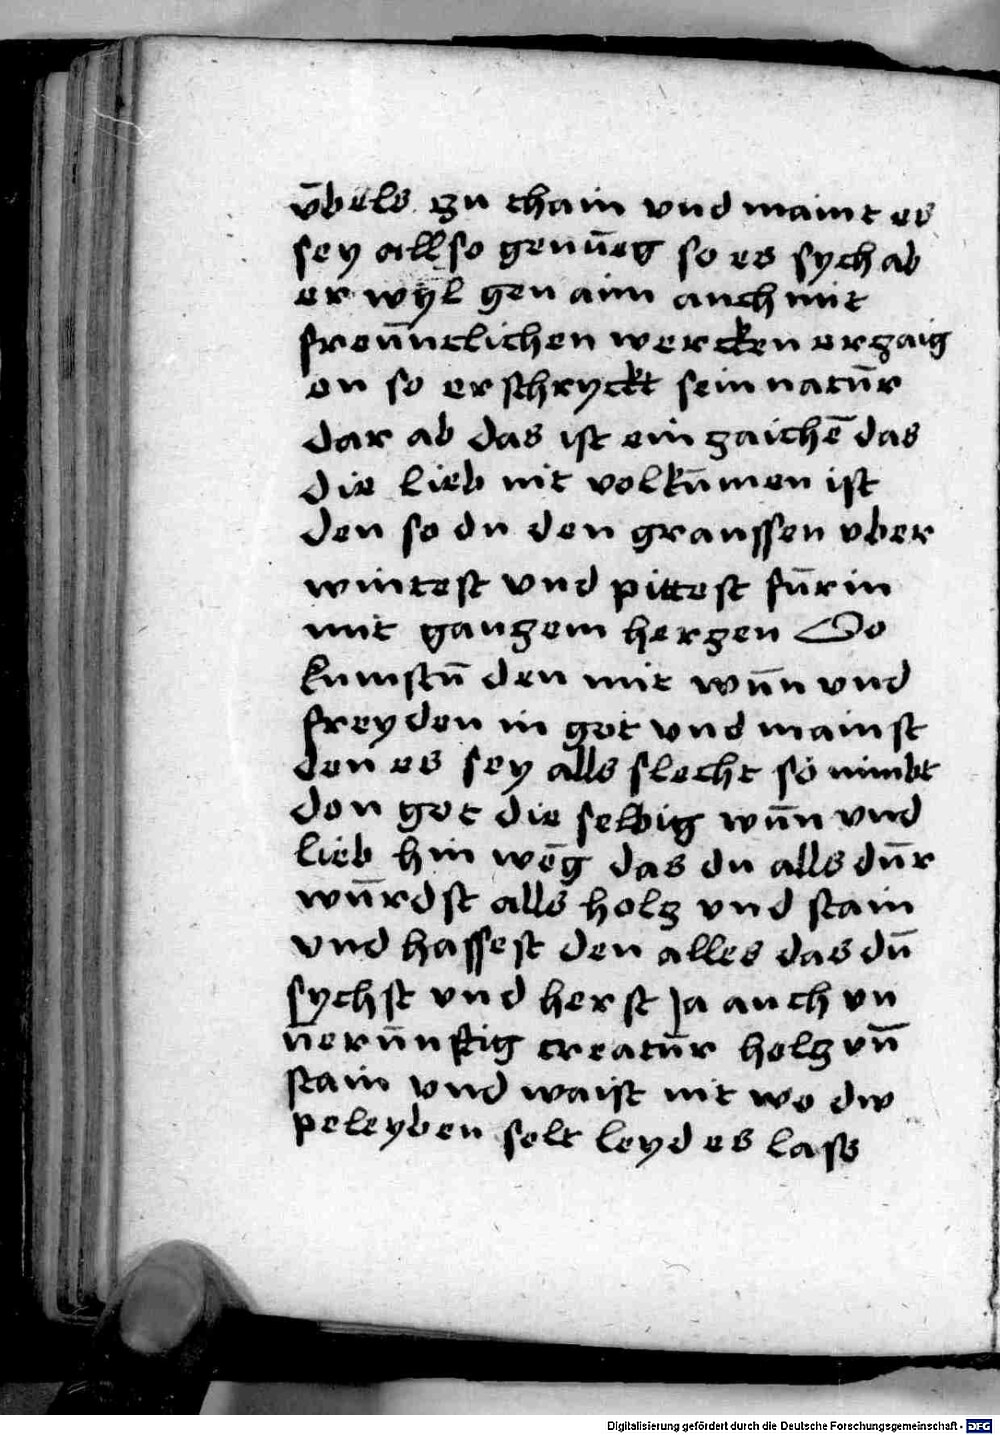 v̄bels zu thain vnd maint es
sey allso genūeg so es sych ab
er wyl gen aim auch mit
freūntlichen wercken erzaig
en so erschryckt sein natūr
dar ab das ist ein zaichē das
die lieb nit volkūmen ist
den so du den graussen vber
wintest vnd pittest fūr in
mit ganzem herzen So
kumstū den mit wūn vnd
freyden in got vnd mainst
den es sey alls slecht so nimbt
den got die selbig wūn vnd
lieb hin wēg das du alls dūr
wūrdst alls holz vnd stain
vnd hassest den alles das dū
sychst vnd herst ja auch vn
v̄erūnftig creatūr holz vn̄
stain vnd waist nit wo dw
peleyben solt leyd es lass
Digitalisierung gefördert durch die Deutsche Forschungsgemeinschaft - DFG